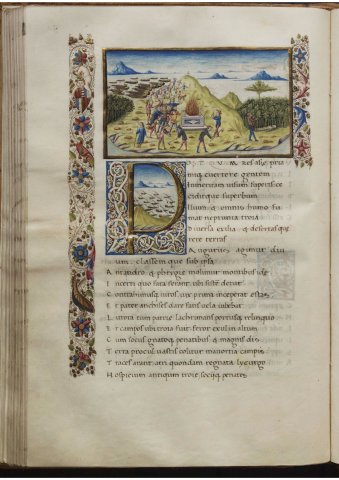 POSTQVAM res asię pria
mique euertere gentem
Inmeritam uisum superis ce
ciditque superbum
Ilium & omnis humo fu
mat neptunia troia
Diuersa exilia & desertas que
rere terras
Auguriis agimur diu
um . classem que sub ipsa
Antandro & phrygię molimur montibus idę
Incerti quo fata ferant ubi sistere detur .
Contrahimusque uiros . uix prima inceperat ęstas .
Et pater anchises dare fatis uela iubebat
Litora cum patrię lachrimans portusque relinquo
Et campos ubi troia fuit . feror exul in altum
Cum sociis gnatoque penatibus & magnis diis
Terra procul uastis colitur mauortia campis
Traces arant acri quondam regnata lycurgo
Hospicium antiquum troię sociique penates